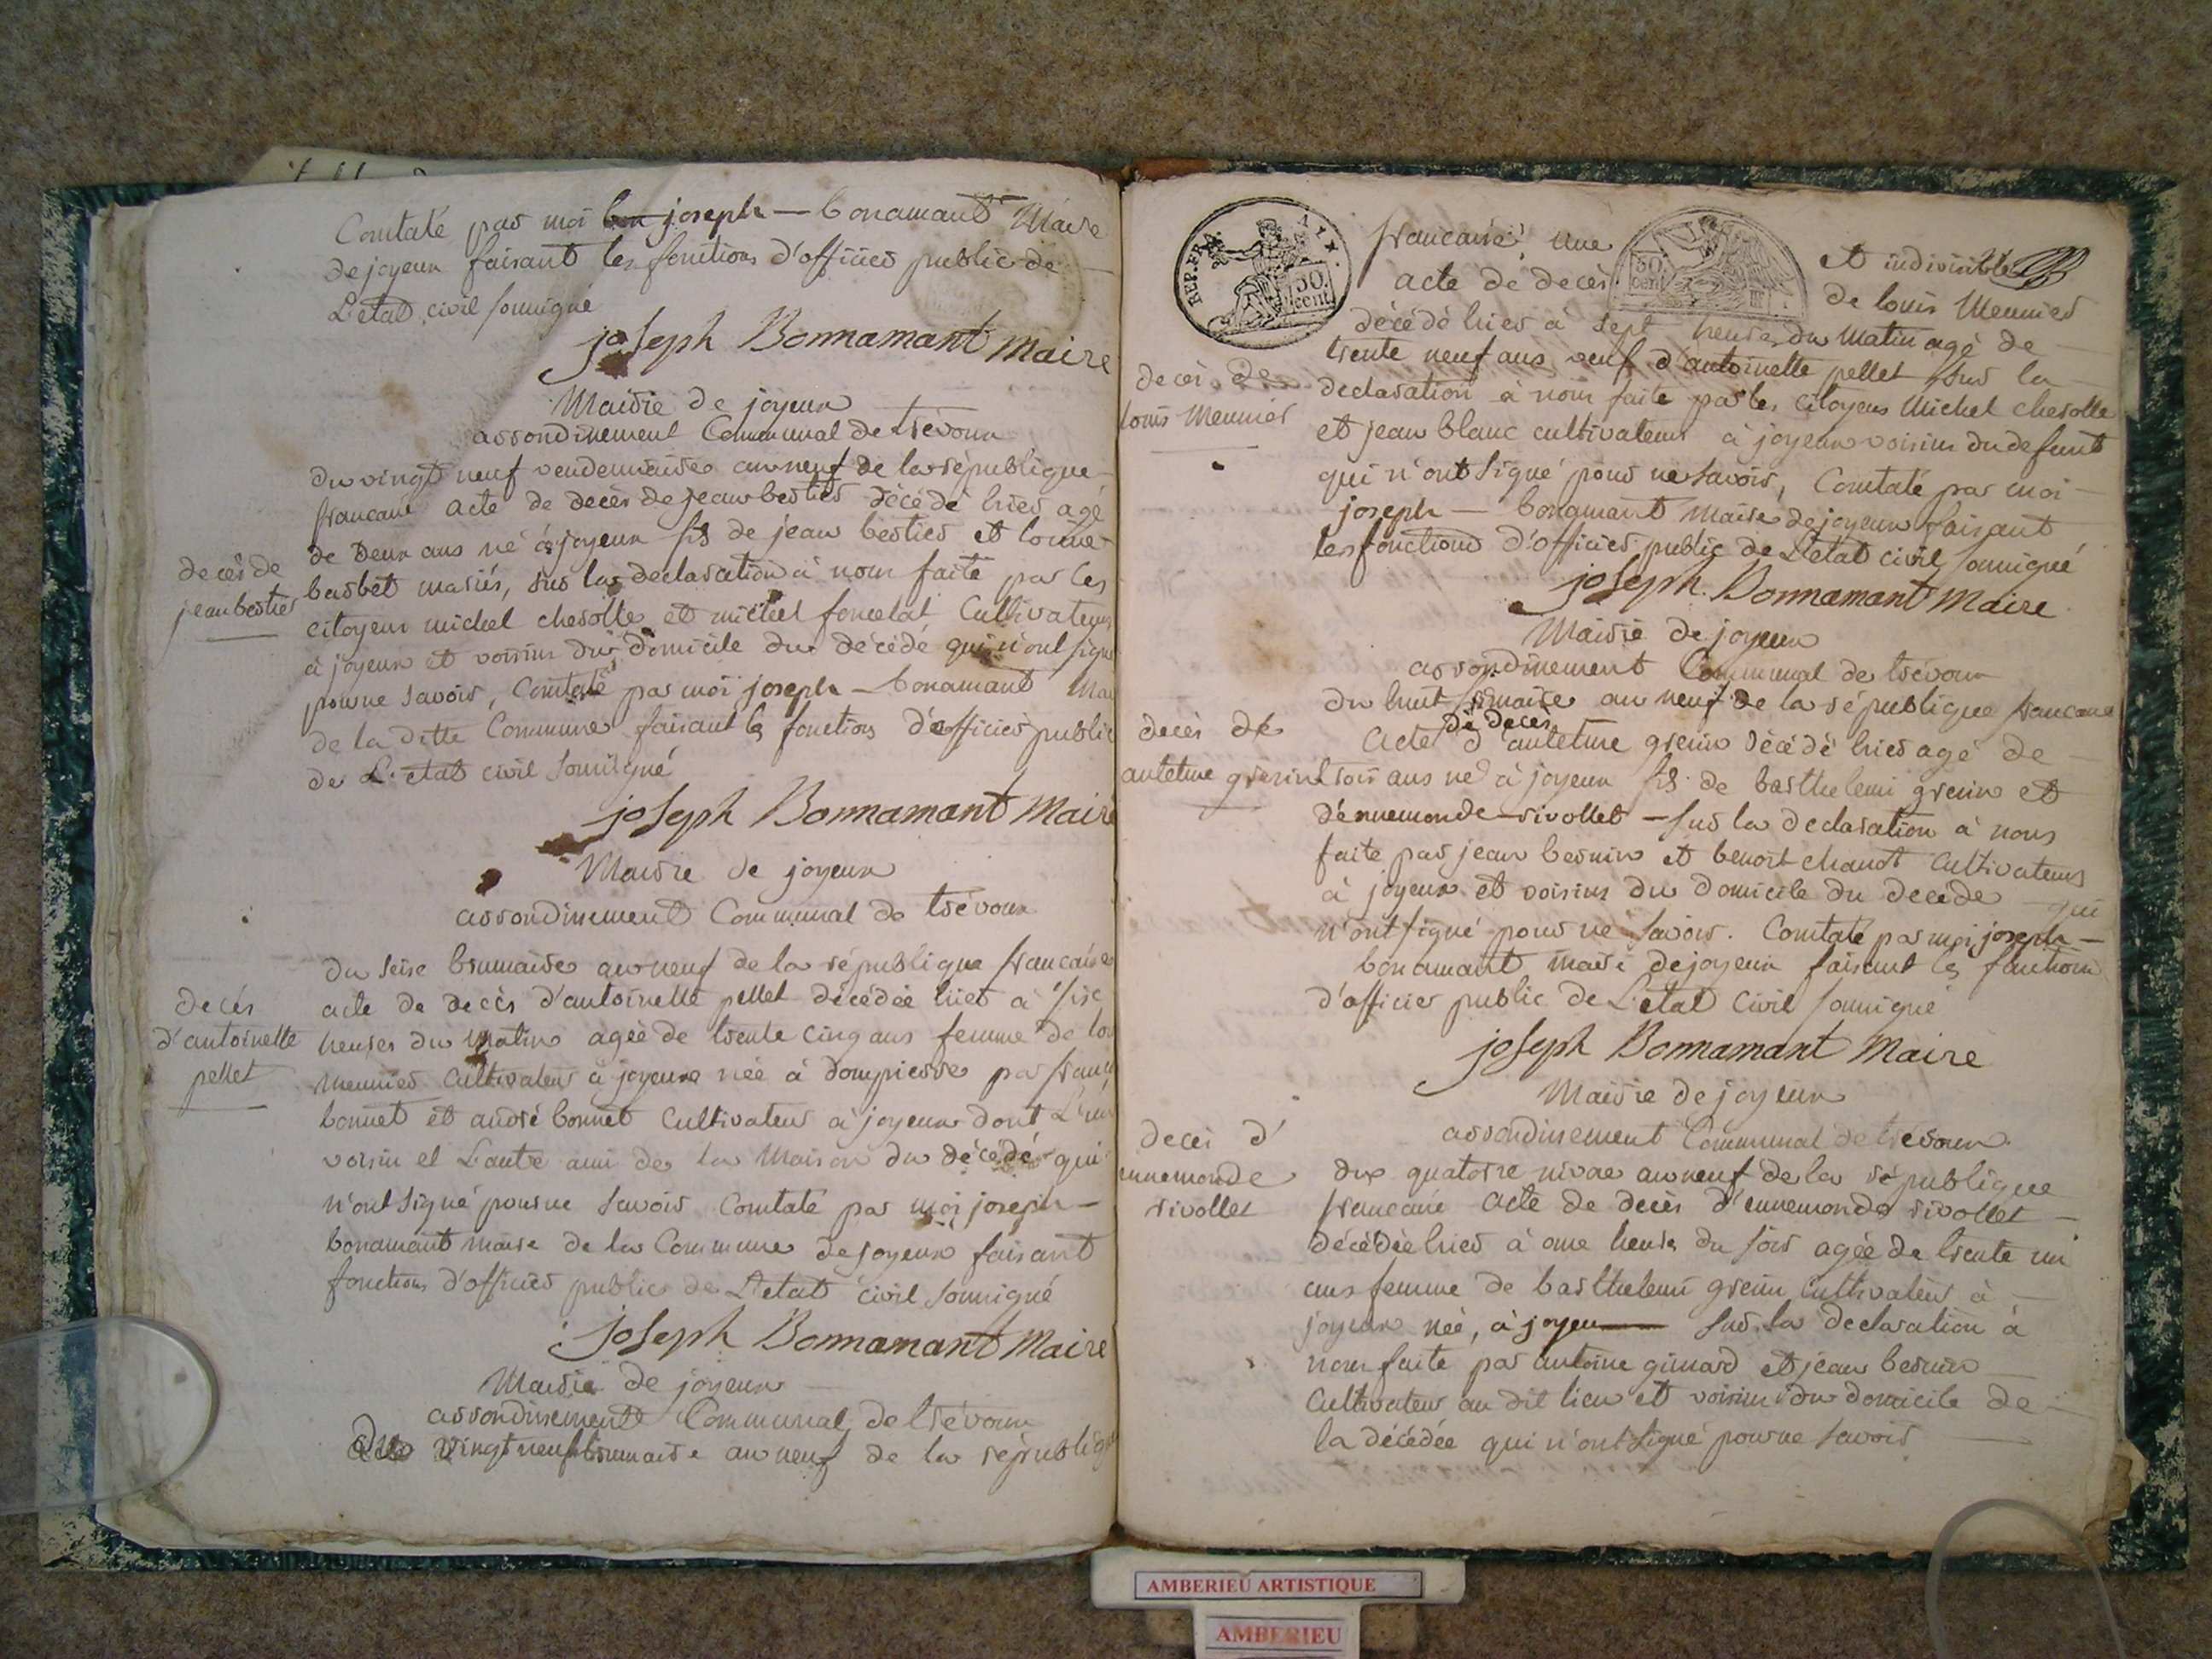 Comtaté par moi joseph — bonamant Maire
de joyeux faisant les fonctions d'officier public de
L'etat civil soussigné
joseph Bonnamant maire
Mairie de joyeux
arrondissement Communal de trévoux
du vingt neuf vendemiaire an neuf de la république
francaise acte de decès de jean bertier décédé hier agé
de deux ans né à joyeux fils de jean bertier et
barbet mariés, sur la declaration à nous faite par les
citoyens michel cherolle et michel Cultivateurs
à joyeux et voisins du domicile du décédé qui n'ont signé
pour ne savoir, Comtaté par moi joseph — bonamant
de la ditte Commune faisant les fonctions d'officier public
de L'etat civil soussigné
decès de
jean bertier
joseph Bonnamant maire
Mairie de joyeux
arrondissement Communal de trévoux
du seise brumaire an neuf de la république francaise
acte de decès d'antoinette pellet décédée hier à
heures du matin agée de trente cinq ans femme de
meunier Cultivateur à joyeux née à dompierre par
bonnet et andré bonnet Cultivateur à joyeux dont
voisin et L'autre ami de la maison du décédé qui
n'ont signé pour ne savoir Comtaté par moi joseph —
bonamant maire de la Commune de joyeux faisant
fonctions d'officier public de L'etat civil soussigné
decès
d'antoinette
pellet
joseph Bonnamant maire
Mairie de joyeux
arrondissement Communal de trévoux
vingt neuf brumaire an neuf de la républi
REP. FRA.
50 cent
50 cent
francaise une et indivisible
acte de decès de louis Meunier
décédé hier à sept heures du matin agé de
trente neuf ans veuf d'antoinette pellet sur la
declaration à nous faite par les citoyens Michel cherolle
et jean blanc cultivateurs à joyeux voisins du defunt
qui n'ont signé pour ne savoir, Comtaté par moi
joseph — bonamant maire de joyeux faisant
les fonctions d'officier public de L'etat civil soussigné
decès de
louis Meunier
joseph Bonnamant maire
Mairie de joyeux
arrondissement Communal de trévoux
du huit frimaire an neuf de la république francaise
de decès
acte d'antelme grenin décédé hier agé de
trois ans né à joyeux fils de barthelemi grenin et
d'ennemonde rivollet — sur la declaration à nous
faite par jean bernin et benoit chanot cultivateurs
à joyeux et voisins du domicile du decede qui
n'ont signé pour ne savoir. Comtaté par moi joseph —
bonamant maire de joyeux faisant les fonctions
d'officier public de L'etat civil soussigné
decès de
antelme grenin
joseph Bonnamant Maire
Mairie de joyeux
arrondissement Communal de trévoux
du quatorse nivose an neuf de la république
francaise acte de decès d'ennemonde rivollet —
décédée hier à onze heures du soir agée de trente un
ans femme de barthelemi grenin cultivateur à
joyeux née, à joyeu— sur la declaration à
nous faite par antoine guinard et jean bernin
cultivateurs au dit lieu et voisins du domicile de
la décédée qui n'ont signé pour ne savoir
decès d'
ennemonde
rivollet
AMBERIEU ARTISTIQUE
AMBERIEU